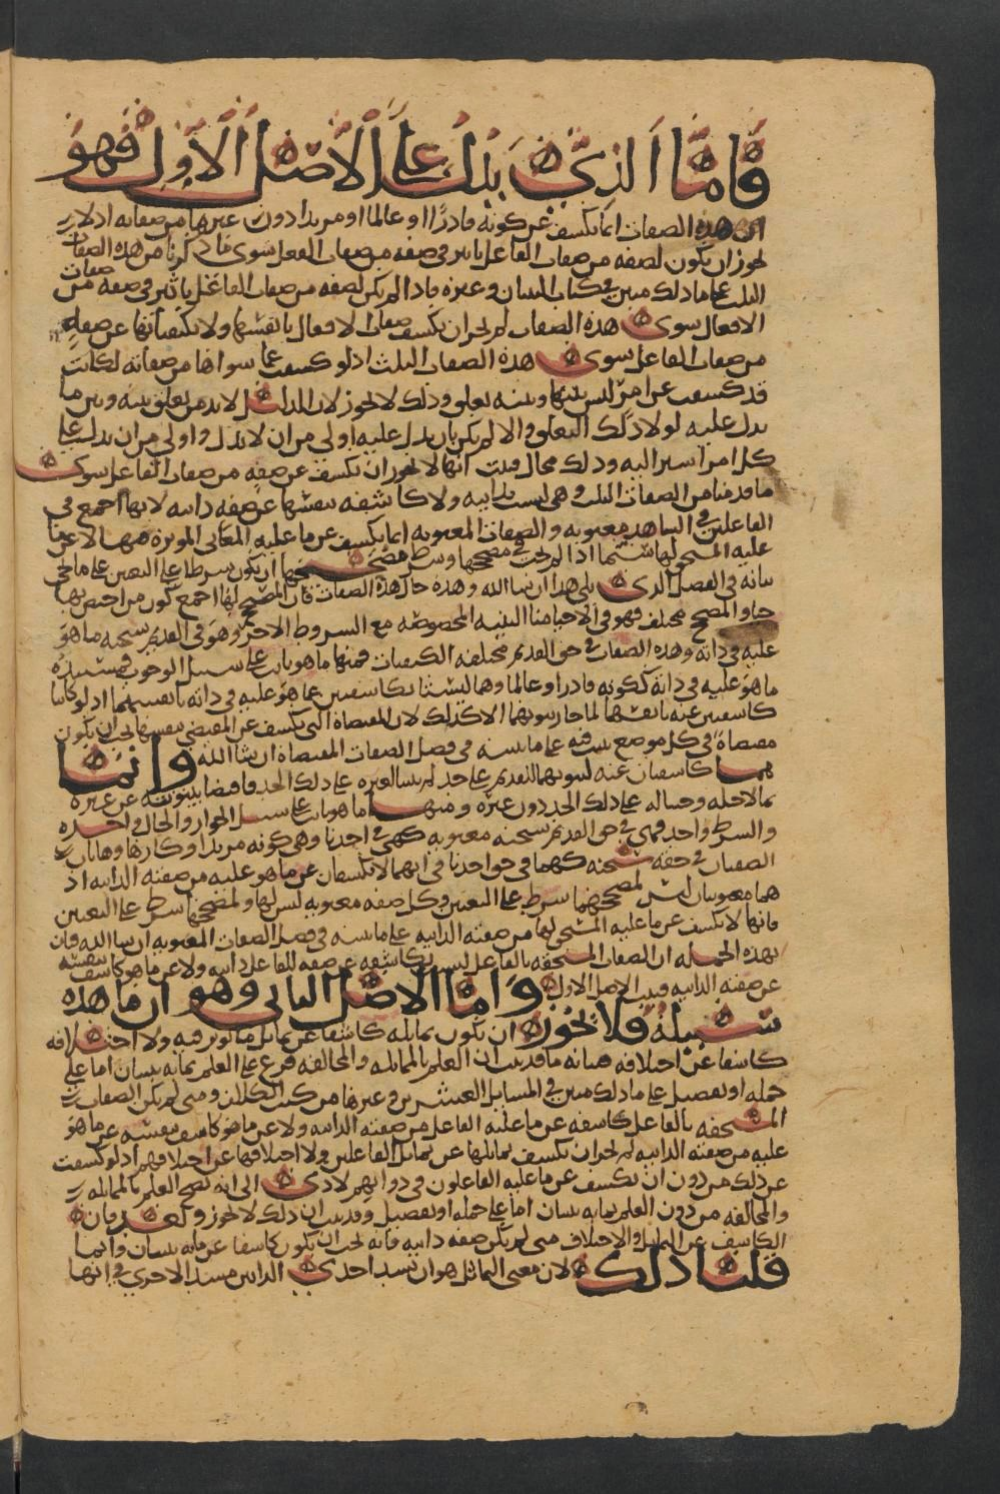 فأما الذي يدل على الأصل الأول فهو
أن هذه الصفات انما تكشف عن كونه قادرًا او عالما او مريدا دون غيرها من صفاته اذ لا
يجوز ان يكون لصفه من صفات الفاعل تاثير في صفه من صفات الفعل سوى ما ذكرنا من هذه الصفات
الثلث على ما ذلك مبين في كتاب البيان وغيره فاذا لم يكن لصفه من صفات الفاعل تاثير في صفه من صفات
الافعال سوى هذه الصفات لم يجز ان تكشف صفات الافعال بانفسها ولا بكيفياتها عن صفه
من صفات الفاعل سوى هذه الصفات الثلث اذ لو كشفت عما سواها من صفاته لكانت
قد كشفت عن امر ليس بينها وبينه تعلق وذلك لا يجوز لان الدليل لا بد من تعلق بينه وبين ما
يدل عليه لولا ذلك التعلق والا لم يكن بان يدل عليه اولى من ان لا يدل واولى من ان يدل على
كل امر اشير اليه وذلك محال فثبت انها لا يجوز ان تكشف عن صفه من صفات الفاعل سوى
ما قدمنا من الصفات الثلث وهي ليست بذاتيه ولا كاشفه بنفسها عن صفه ذاتيه لانها اجمع في
الفاعلين في الشاهد معنويه والصفات المعنويه انما تكشف عن ما عليه المعاني الموثره فيها لا عن ما
عليه المستحق لها شيئا اذا لم يجب في مصححها وشرط مصححها ان يكون شرطا على التعيين على ما يجي
بيانه في الفصل الذي يلي هذا ان شا الله وهذه حال هذه الصفات فان المصحح لها اجمع كون من اختص بها
حيا والمصحح مختلف فهو في الاحيا منا البنيه المخصوصه مع الشروط الاخر وهو في القديم سبحنه ما هو
عليه في ذاته وهذه الصفات في حق القديم مختلفه الكيفيات فمنها ما هو ثابت على سبيل الوجوب
ما هو عليه في ذاته ككونه قادرا وعالما وهما ليستا بكاشفتين عما هو عليه في ذاته بانفسهما اذ لو كانتا
كاشفتين عنه بانفسهما لما جاز ثبوتهما الا كذلك لان المقتضاة التي تكشف عن المقتضي بنفسها يجب ان تكون
مقتضاة في كل موضع ثبتت فيه على ما نبينه في فصل الصفات المقتضاة ان شا الله وانما
هما كاشفتان عنه لثبوتهما للقديم على حد لم يثبتا لغيره على ذلك الحد فاقتضا بينونته عن غيره
بما لاجله وجبتا له على ذلك الحد دون غيره ومنها ما هو ثابت على سبيل الجواز والحال واحده
والشرط واحد فهي في حق القديم سبحنه معنويه كهي في احدنا وهي كونه مريدا وكارها وهاتان
الصفتان في حقه سبحنه كهما في حق احدنا في انهما لا تكشفان عن ما هو عليه من صفته الذاتيه اذ
هما معنويتان ليس لمصححهما شرط على التعيين وكل صفه معنويه ليس لها ولمصححها شرط على التعيين
فانها لا تكشف عن ما عليه المستحق لها من صفته الذاتيه على ما نبينه في فصل الصفات المعنويه ان شا الله فبان
بهذه الجمله ان الصفات المستحقه بالفاعل ليست بكاشفه عن صفه للفاعل ذاتيه ولا عن ما هو كاشف بنفسه
عن صفته الذاتيه فثبت الاصل الاول واما الأصل الثاني وهو ان ما هذه
سبيله فلا يجوز ان يكون تماثله كاشفا عن تماثل ما يوثر فيه ولا اختلافه
كاشفا عن اختلافه فبيانه ما قد ثبت ان العلم بالمماثله والمخالفه فرع على العلم بما به يثبتان اما على
جمله او تفصيل على ما ذلك مبين في المسايل العشرين وغيرها من كتب الكلام ومتى لم تكن الصفات
المستحقه بالفاعل كاشفه عن ما عليه الفاعل من صفته الذاتيه ولا عن ما هو كاشف بنفسه عن ما هو
عليه من صفته الذاتيه لم يجز ان تكشف بتماثلها عن تماثل الفاعلين ولا اختلافها عن اختلافهم اذ لو كشفت
عن ذلك من دون ان تكشف عن ما عليه الفاعلون في ذواتهم لادى الى انه يصح العلم بالمماثله
والمخالفه من دون العلم بما به يثبتان اما على جمله او تفصيل وقد ثبت ان ذلك لا يجوز وبعد فان
الكاشف عن التماثل والاختلاف متى لم يكن صفه ذاتيه فانه يجب ان يكون كاشفا عن ما به يثبتان وانما
قلنا ذلك لان معنى التماثل هو ان تسد احدى الذاتين مسد الاخرى في انها